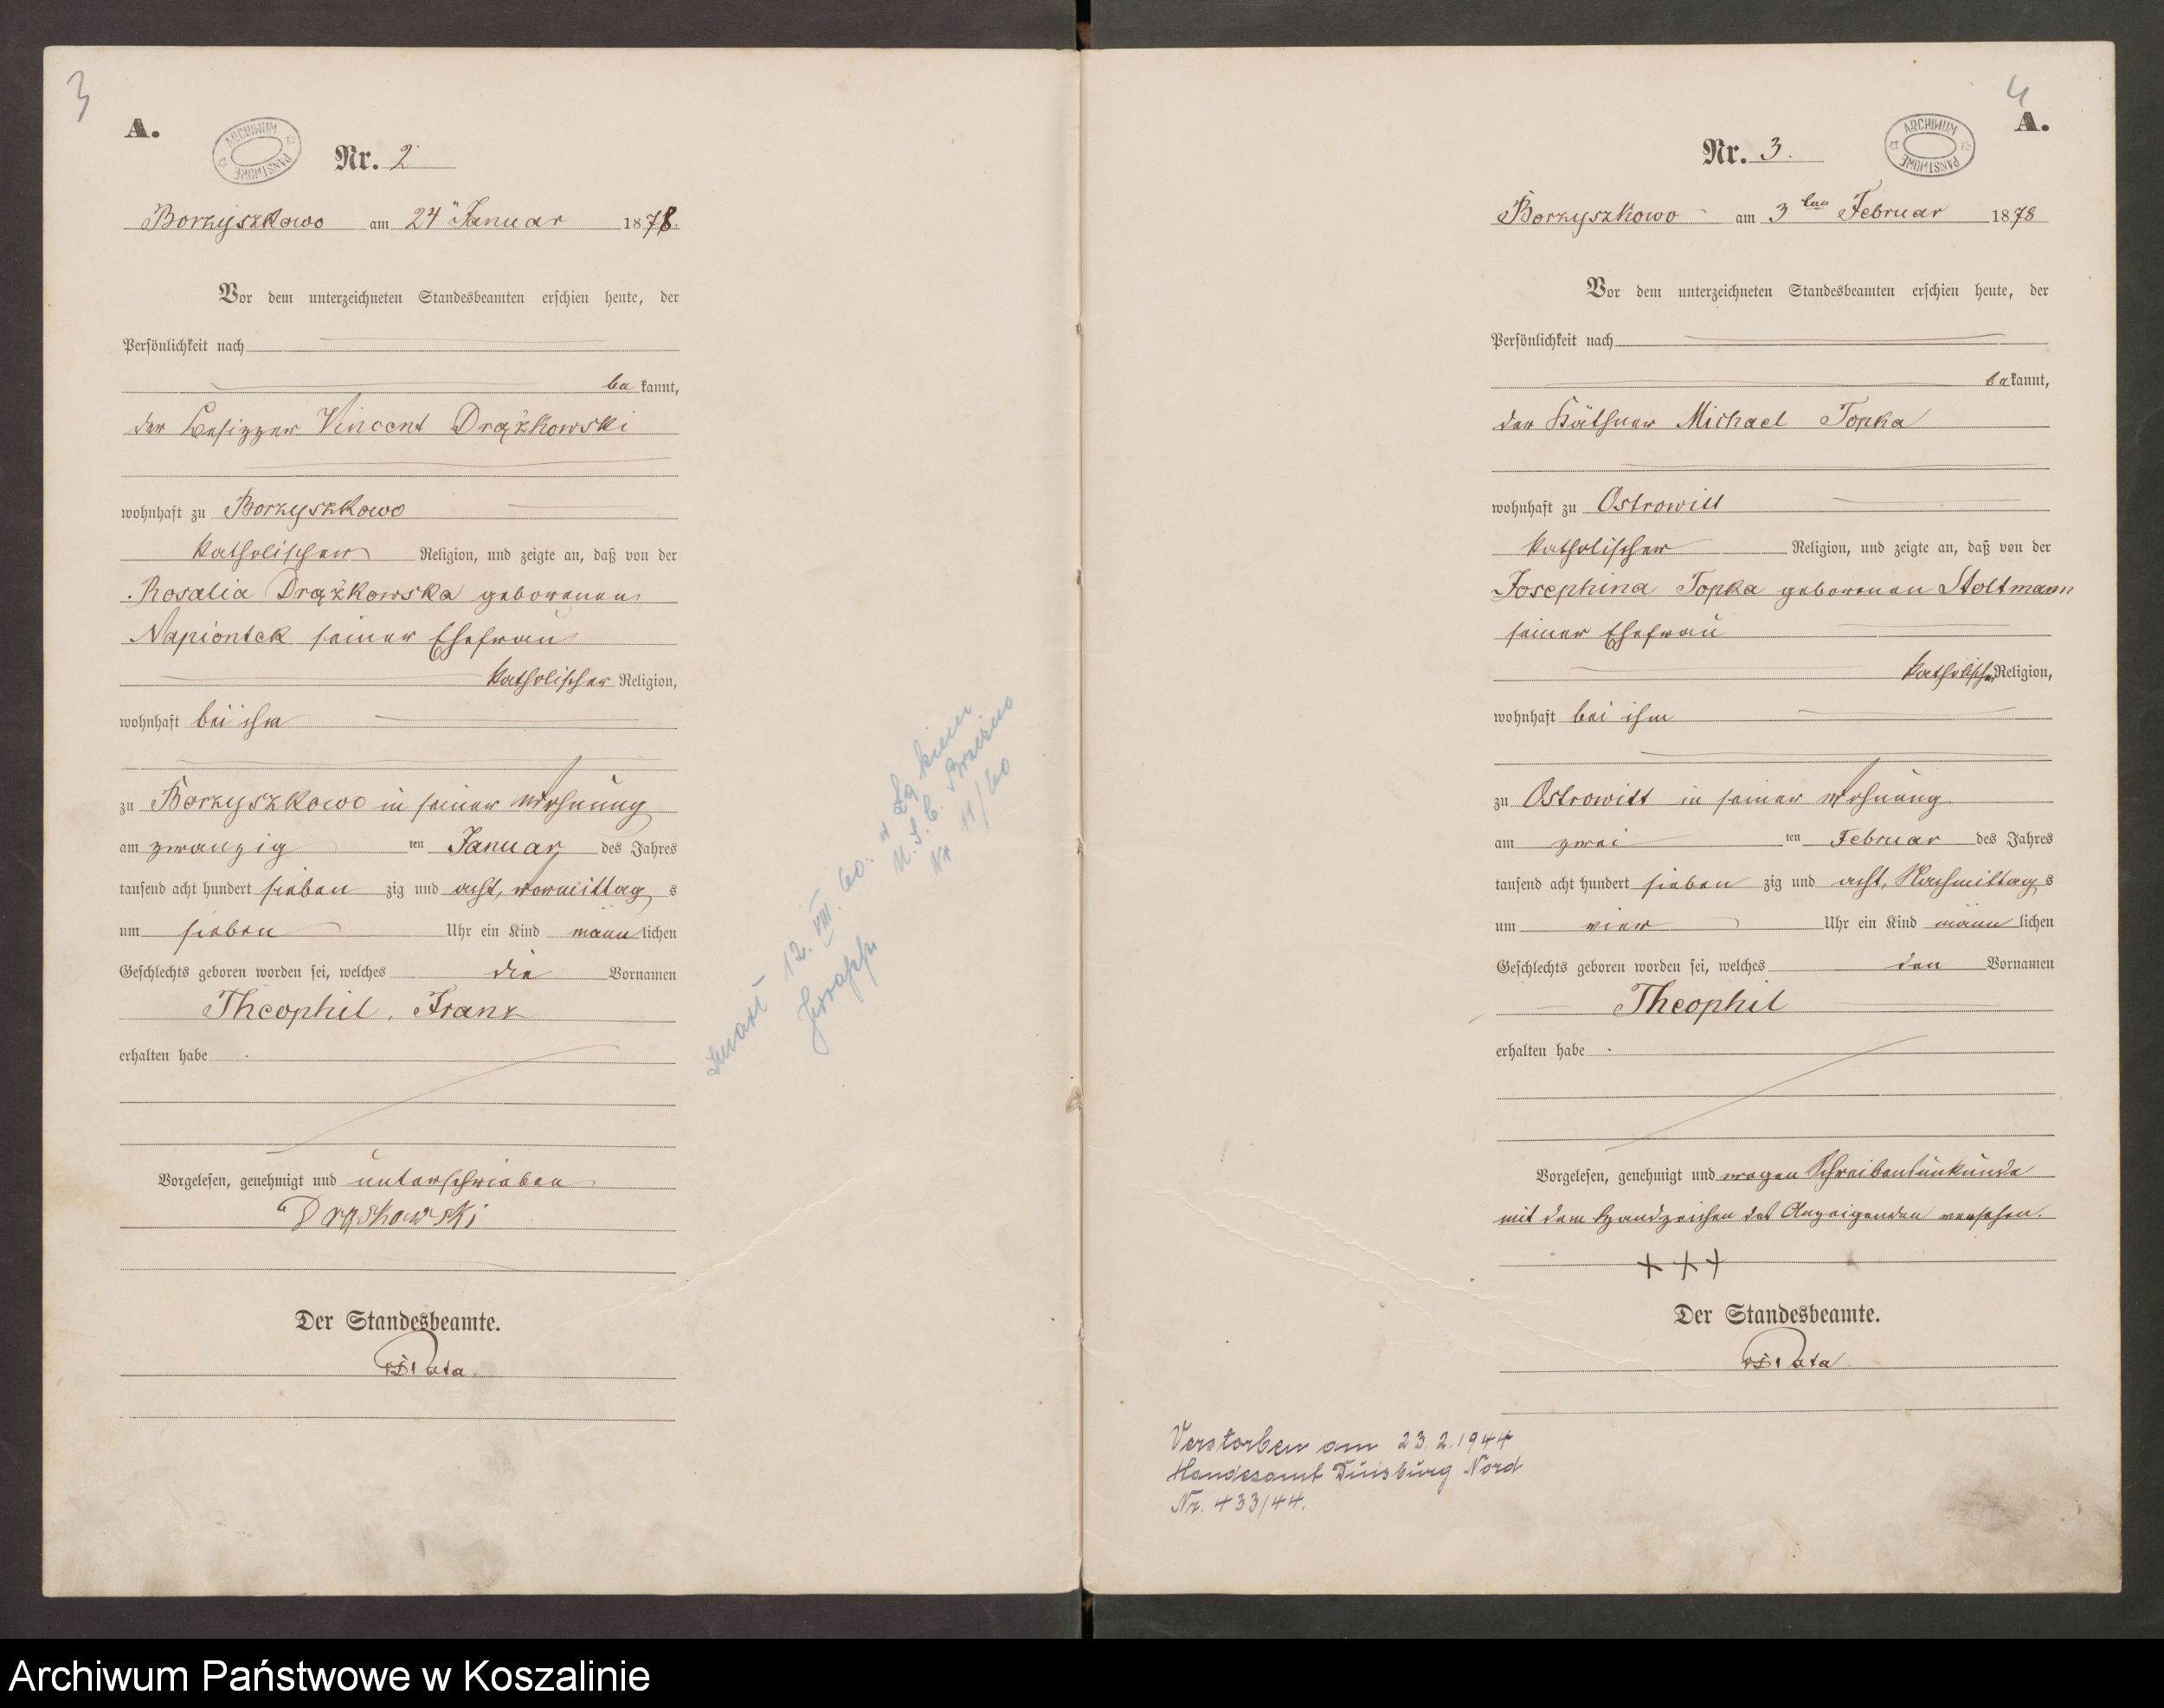 3
A.
ARCHIWUM PAŃSTWOWE
Nr. 2
Borzyszkowo am 24 Januar 1878.
Vor dem unterzeichneten Standesbeamten erschien heute, der
Persönlichkeit nach
be kannt,
der Besizzer Vincent Drążkowski
wohnhaft zu Borzyszkowo
katholischer Religion, und zeigte an, daß von der
Rosalia Drążkowska geborenen
Napiontek seiner Ehefrau
katholischer Religion,
wohnhaft bei ihm
zu Borzyszkowo in seiner Wohnung
am zwanzig ten Januar des Jahres
tausend acht hundert sieben zig und acht, vormittag s
um sieben Uhr ein Kind männ lichen
Geschlechts geboren worden sei, welches die Vornamen
Theophil, Franz
erhalten habe.
Vorgelesen, genehmigt und unterschrieben
Drąskowski
Der Standesbeamte.
Pata.
zmarł 12. VIII. 60. w Łąkiem
U.S.C. Brzeźno
Nr 11/60
4
A.
ARCHIWUM PAŃSTWOWE
Nr. 3.
Borzyszkowo am 3ten Februar 1878
Vor dem unterzeichneten Standesbeamten erschien heute, der
Persönlichkeit nach
be kannt,
der Käthner Michael Topka
wohnhaft zu Ostrowitt
katholischer Religion, und zeigte an, daß von der
Josephina Topka geborenen Stoltmann
seiner Ehefrau
katholischer Religion,
wohnhaft bei ihm
zu Ostrowitt in seiner Wohnung
am zwei ten Februar des Jahres
tausend acht hundert sieben zig und acht, Nachmittag s
um vier Uhr ein Kind männ lichen
Geschlechts geboren worden sei, welches den Vornamen
Theophil
erhalten habe.
Vorgelesen, genehmigt und wegen Schreibensunkunde
mit dem Handzeichen des Anzeigenden versehen.
+++
Der Standesbeamte.
Pata
Verstorben am 23.2.1944
Standesamt Duisburg Nord
Nr. 433/44.
Archiwum Państwowe w Koszalinie